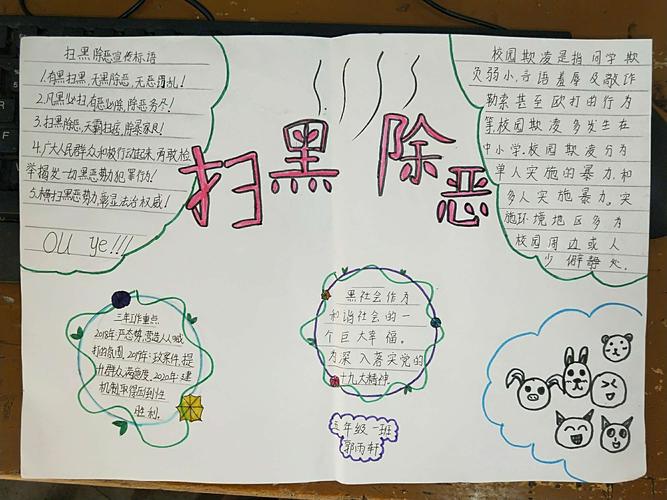 扫黑除恶宣传标语
1.有黑扫黑,无黑除恶,无恶治乱!
2.凡黑必扫,有恶必除,除恶务尽!
3.扫黑除恶,天霸扫痞,除暴安良!
4.广大人民群众积极行动起来,勇敢检
举揭发一切黑恶势力犯罪行为!
5.横扫黑恶势力,彰显法治权威!
OU ye!!!
扫黑除恶
校园欺凌是指同学欺
负弱小,言语羞辱及敲诈
勒索甚至欧打的行为
等,校园欺凌多发生在
中小学.校园欺凌分为
单人实施的暴力和
多人实施暴力.实
施环境地区多为
校园周边或人
少僻静处.
三年工作重点
2018年:严态势,营造人人喊
打的氛围,2019年:攻案件,提
升群众满意度,2020年:建
机制,取得压倒性
胜利.
黑社会作为
和谐社会的一
个巨大幸福.
为深入落实党的
十九大精神.
三年级一班
郭雨轩